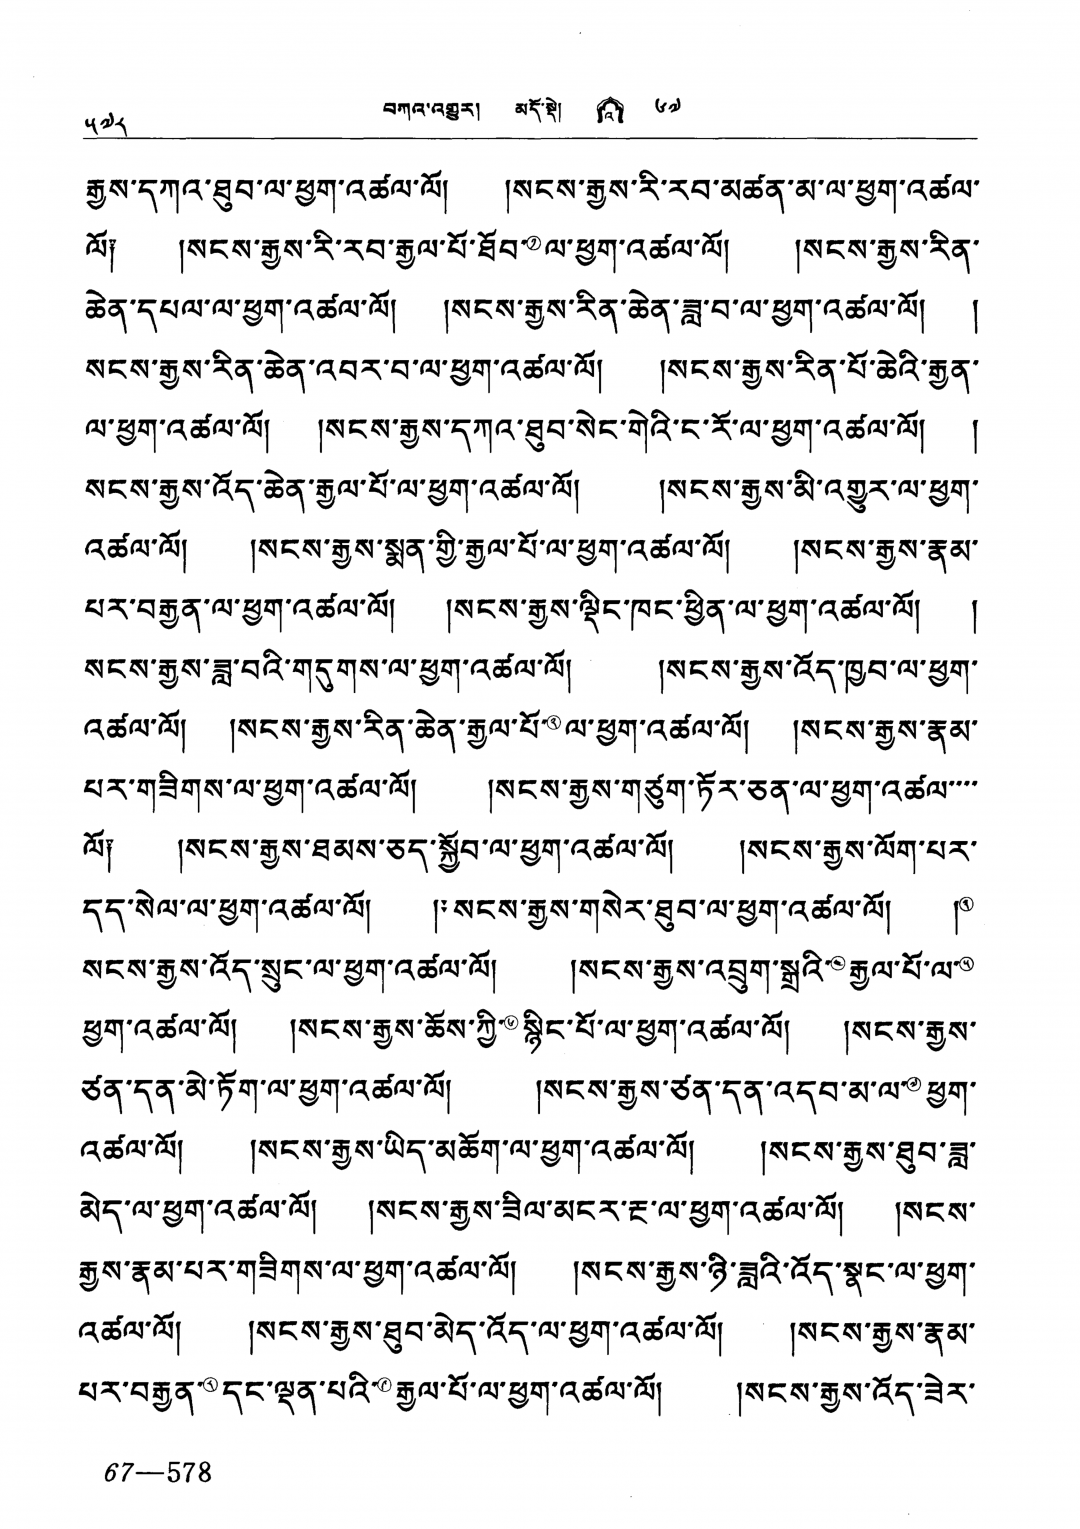 ༥༧༨ བཀའ་འགྱུར། མདོ་སྡེ། འ ༦༧
རྒྱས་དཀའ་ཐུབ་ལ་ཕྱག་འཚལ་ལོ། །སངས་རྒྱས་རི་རབ་མཚན་མ་ལ་ཕྱག་འཚལ་
ལོ༑ །སངས་རྒྱས་རི་རབ་རྒྱལ་པོ་ཐོབ་①ལ་ཕྱག་འཚལ་ལོ། །སངས་རྒྱས་རིན་
ཆེན་དཔལ་ལ་ཕྱག་འཚལ་ལོ། །སངས་རྒྱས་རིན་ཆེན་ཟླ་བ་ལ་ཕྱག་འཚལ་ལོ། །
སངས་རྒྱས་རིན་ཆེན་འབར་བ་ལ་ཕྱག་འཚལ་ལོ། །སངས་རྒྱས་རིན་པོ་ཆེའི་རྒྱན་
ལ་ཕྱག་འཚལ་ལོ། །སངས་རྒྱས་དཀའ་ཐུབ་སེང་གེའི་ང་རོ་ལ་ཕྱག་འཚལ་ལོ། །
སངས་རྒྱས་འོད་ཆེན་རྒྱལ་པོ་ལ་ཕྱག་འཚལ་ལོ། །སངས་རྒྱས་མི་འགྱུར་ལ་ཕྱག་
འཚལ་ལོ། །སངས་རྒྱས་སྨན་གྱི་རྒྱལ་པོ་ལ་ཕྱག་འཚལ་ལོ། །སངས་རྒྱས་རྣམ་
པར་བརྒྱན་ལ་ཕྱག་འཚལ་ལོ། །སངས་རྒྱས་ལྡིང་ཁང་ཕྱིན་ལ་ཕྱག་འཚལ་ལོ། །
སངས་རྒྱས་ཟླ་བའི་གདུགས་ལ་ཕྱག་འཚལ་ལོ། །སངས་རྒྱས་འོད་ཁྱབ་ལ་ཕྱག་
འཚལ་ལོ། །སངས་རྒྱས་རིན་ཆེན་རྒྱལ་པོ་②ལ་ཕྱག་འཚལ་ལོ། །སངས་རྒྱས་རྣམ་
པར་གཟིགས་ལ་ཕྱག་འཚལ་ལོ། །སངས་རྒྱས་གཙུག་ཏོར་ཅན་ལ་ཕྱག་འཚལ་་་་་
ལོ༑ །སངས་རྒྱས་ཐམས་ཅད་སྐྱོབ་ལ་ཕྱག་འཚལ་ལོ། །སངས་རྒྱས་ལོག་པར་
དད་སེལ་ལ་ཕྱག་འཚལ་ལོ། །སངས་རྒྱས་གསེར་ཐུབ་ལ་ཕྱག་འཚལ་ལོ། །③
སངས་རྒྱས་འོད་སྲུང་ལ་ཕྱག་འཚལ་ལོ། །སངས་རྒྱས་འབྲུག་སྒྲའི་④རྒྱལ་པོ་ལ་⑤
ཕྱག་འཚལ་ལོ། །སངས་རྒྱས་ཆོས་ཀྱི་⑥སྙིང་པོ་ལ་ཕྱག་འཚལ་ལོ། །སངས་རྒྱས་
ཙན་དན་མེ་ཏོག་ལ་ཕྱག་འཚལ་ལོ། །སངས་རྒྱས་ཙན་དན་འདབ་མ་ལ་⑦ཕྱག་
འཚལ་ལོ། །སངས་རྒྱས་ཡིད་མཆོག་ལ་ཕྱག་འཚལ་ལོ། །སངས་རྒྱས་ཐུབ་ཟླ་
མེད་ལ་ཕྱག་འཚལ་ལོ། །སངས་རྒྱས་ཟིལ་མངར་རྔ་ལ་ཕྱག་འཚལ་ལོ། །སངས་
རྒྱས་རྣམ་པར་གཟིགས་ལ་ཕྱག་འཚལ་ལོ། །སངས་རྒྱས་ཉི་ཟླའི་འོད་སྣང་ལ་ཕྱག་
འཚལ་ལོ། །སངས་རྒྱས་ཐུབ་མེད་འོད་ལ་ཕྱག་འཚལ་ལོ། །སངས་རྒྱས་རྣམ་
པར་བརྒྱན་⑧དང་ལྡན་པའི་⑨རྒྱལ་པོ་ལ་ཕྱག་འཚལ་ལོ། །སངས་རྒྱས་འོད་ཟེར་
67—578